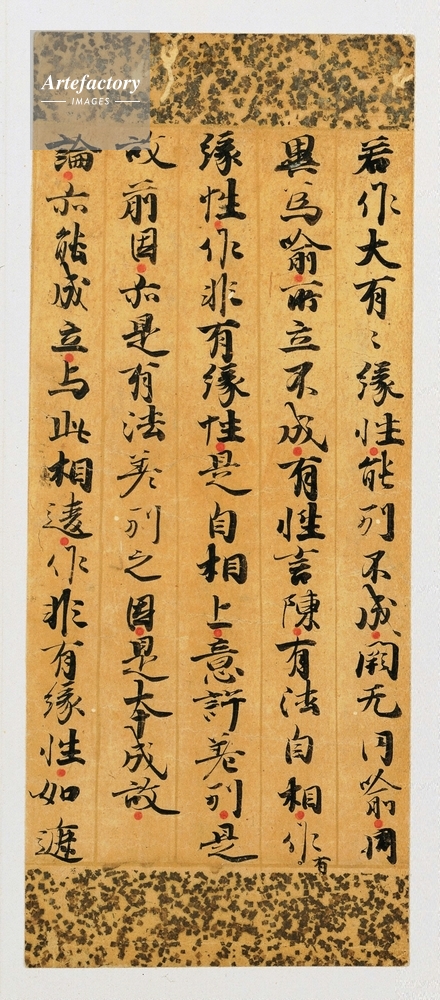 Artefactory
IMAGES
若作大有〻緣性能別不成闕无同喻同
異為喻所立不成有性言陳有法自相作有
緣性作非有緣性是自相上意許差別是
故前因亦是有法差別之因是夲成故
論亦能成立与此相違作非有緣性如遮